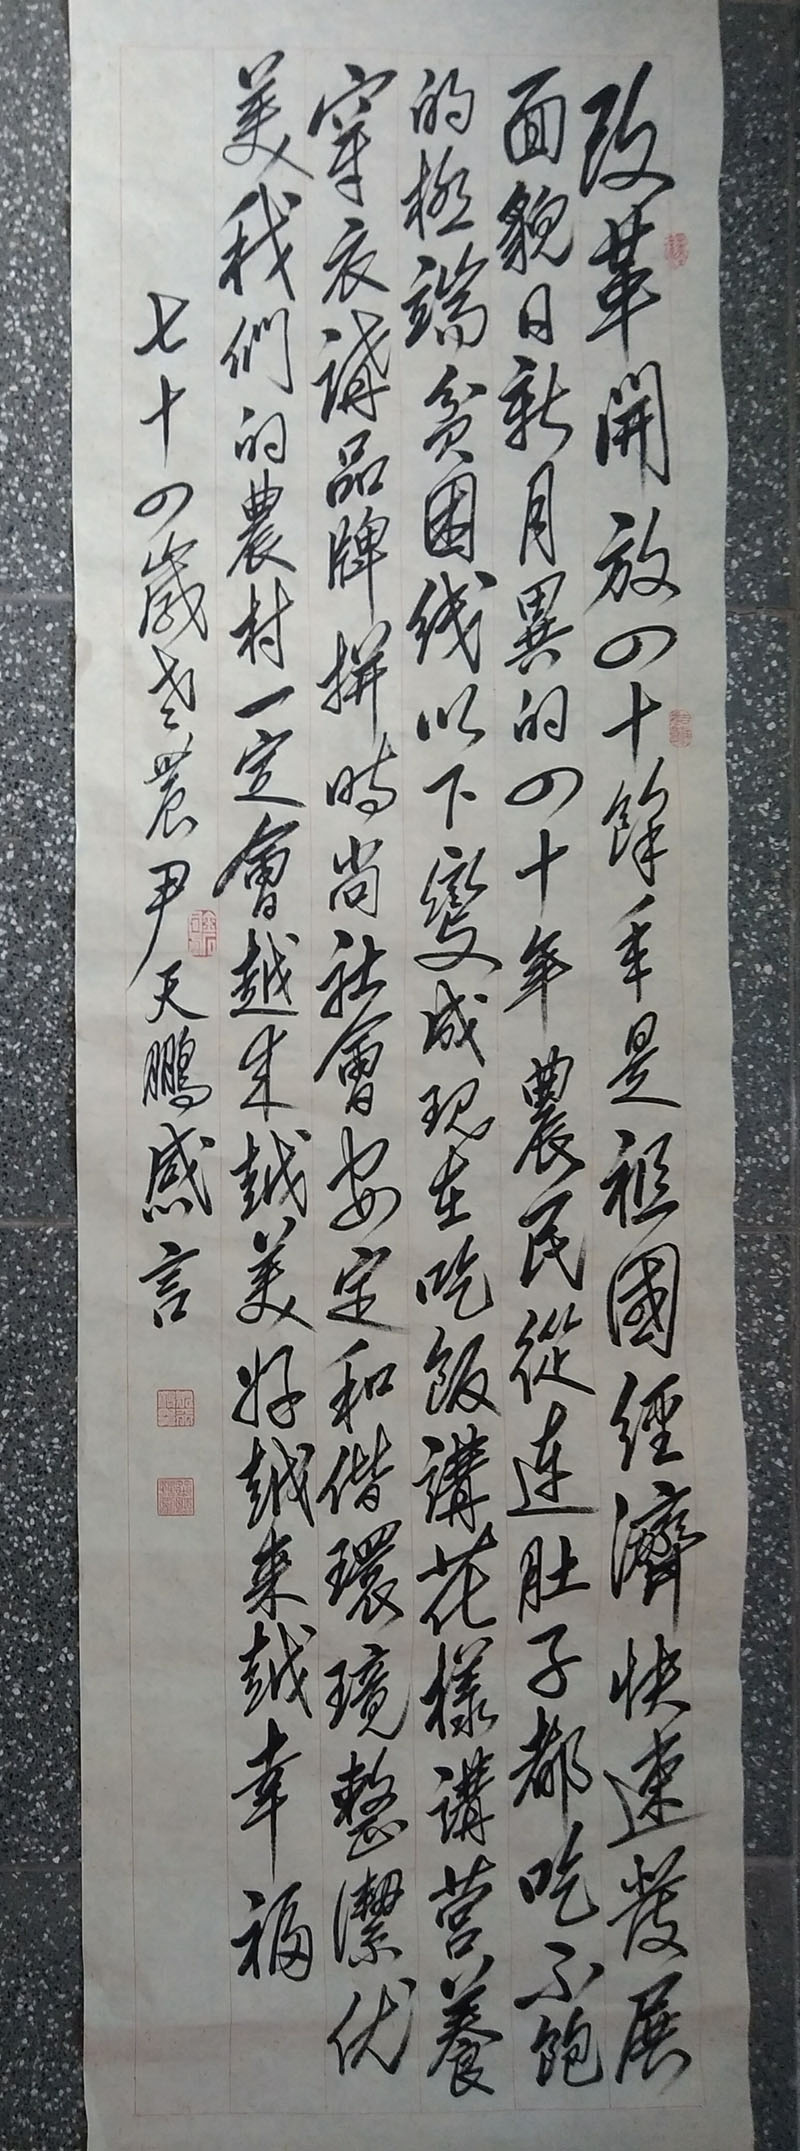 改革開放四十餘年是祖國經濟快速發展
面貌日新月異的四十年農民從連肚子都吃不飽
的極端貧困线以下變成现在吃飯講花樣講营養
穿衣講品牌拼時尚社會安定和偕環境整潔优
美我們的農村一定會越来越美好越来越幸福
七十四歲老農尹天鵬感言